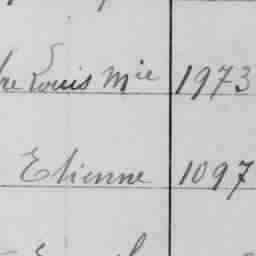 Louis Mie 1973
Etienne 1097